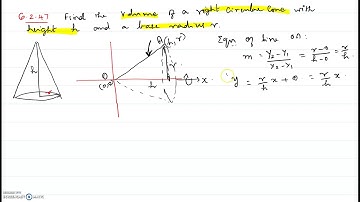 6.2.47 Find the volume of a right circular cone with
height h and a base radius r.
Eqn of line OA:
m = y₂-y₁/x₂-x₁ = r-0/h-0 = r/h
y = r/h x + 0 = r/h x.
A(h,r)
h
r
r
O
(0,0)
h
x